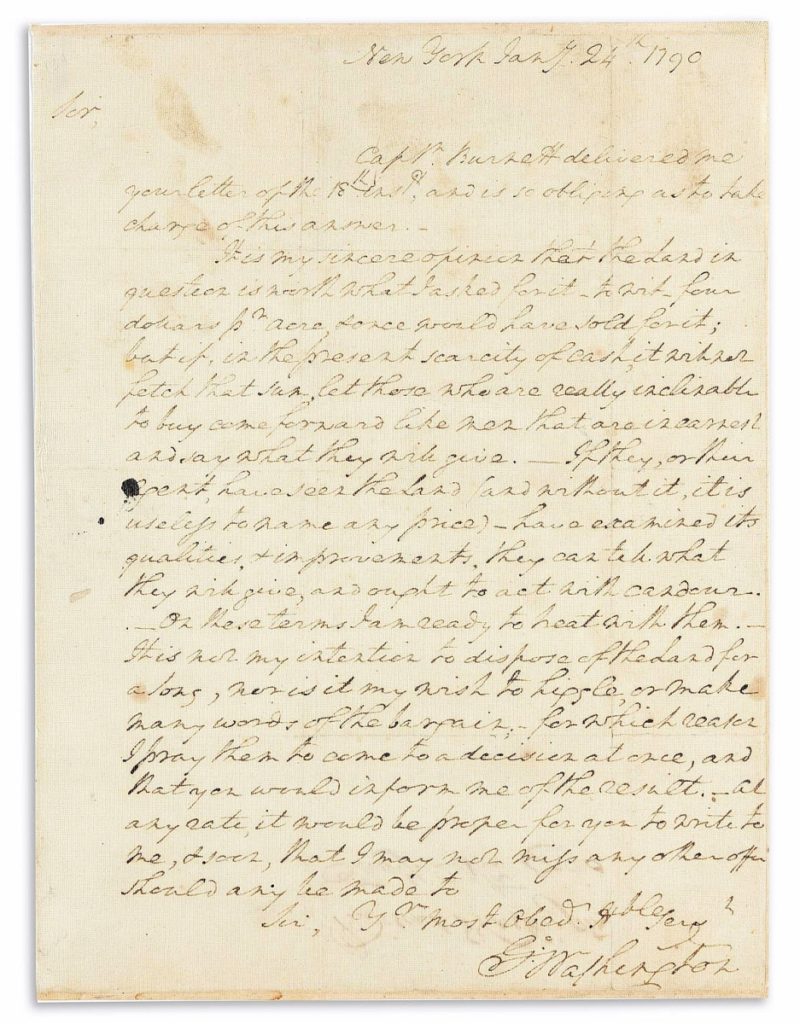 New York Jan.y 24.th 1790
Sir,
Capt.n Burnett delivered me
your letter of the 18th inst.t, and is so obliging as to take
charge of this answer. –
It is my sincere opinion that the Land in
question is worth what I asked for it – to wit – four
dollars pr acre, & once would have sold for it;
but if, in the present scarcity of cash, it will not
fetch that sum, let those who are really inclinable
to buy come forward like men that are in earnest
and say what they will give. — If they, or their
agent, have seen the Land (and without it, it is
useless to name any price) – have examined its
qualities, & improvements, they can tell what
they will give, and ought to act with candour.
. – On these terms I am ready to treat with them. –
It is not my intention to dispose of the Land for
a song, nor is it my wish to higgle, or make
many words of the bargain, – for which reason
I pray them to come to a decision at once, and
that you would inform me of the result. – At
any rate, it would be proper for you to write to
me, & soon, that I may not miss any other offer
should any be made to
Sir, Yr most Obed. Hble Serv
Go: Washington